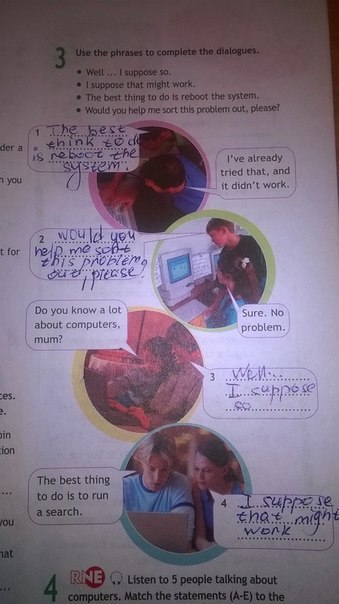 3 Use the phrases to complete the dialogues.
• Well ... I suppose so.
• I suppose that might work.
• The best thing to do is reboot the system.
• Would you help me sort this problem out, please?
1 The best
think to do
is reboot the
system.
der a
n you
I've already
tried that, and
it didn't work.
2 would you
help me sort
this problem
out, please
t for
Sure. No
problem.
Do you know a lot
about computers,
mum?
3 Well...
I suppose
so
ces.
e.
oin
tion
...
you
hat
...
The best thing
to do is to run
a search.
4 I suppose
that might
work
4 RNE Listen to 5 people talking about
computers. Match the statements (A-E) to the